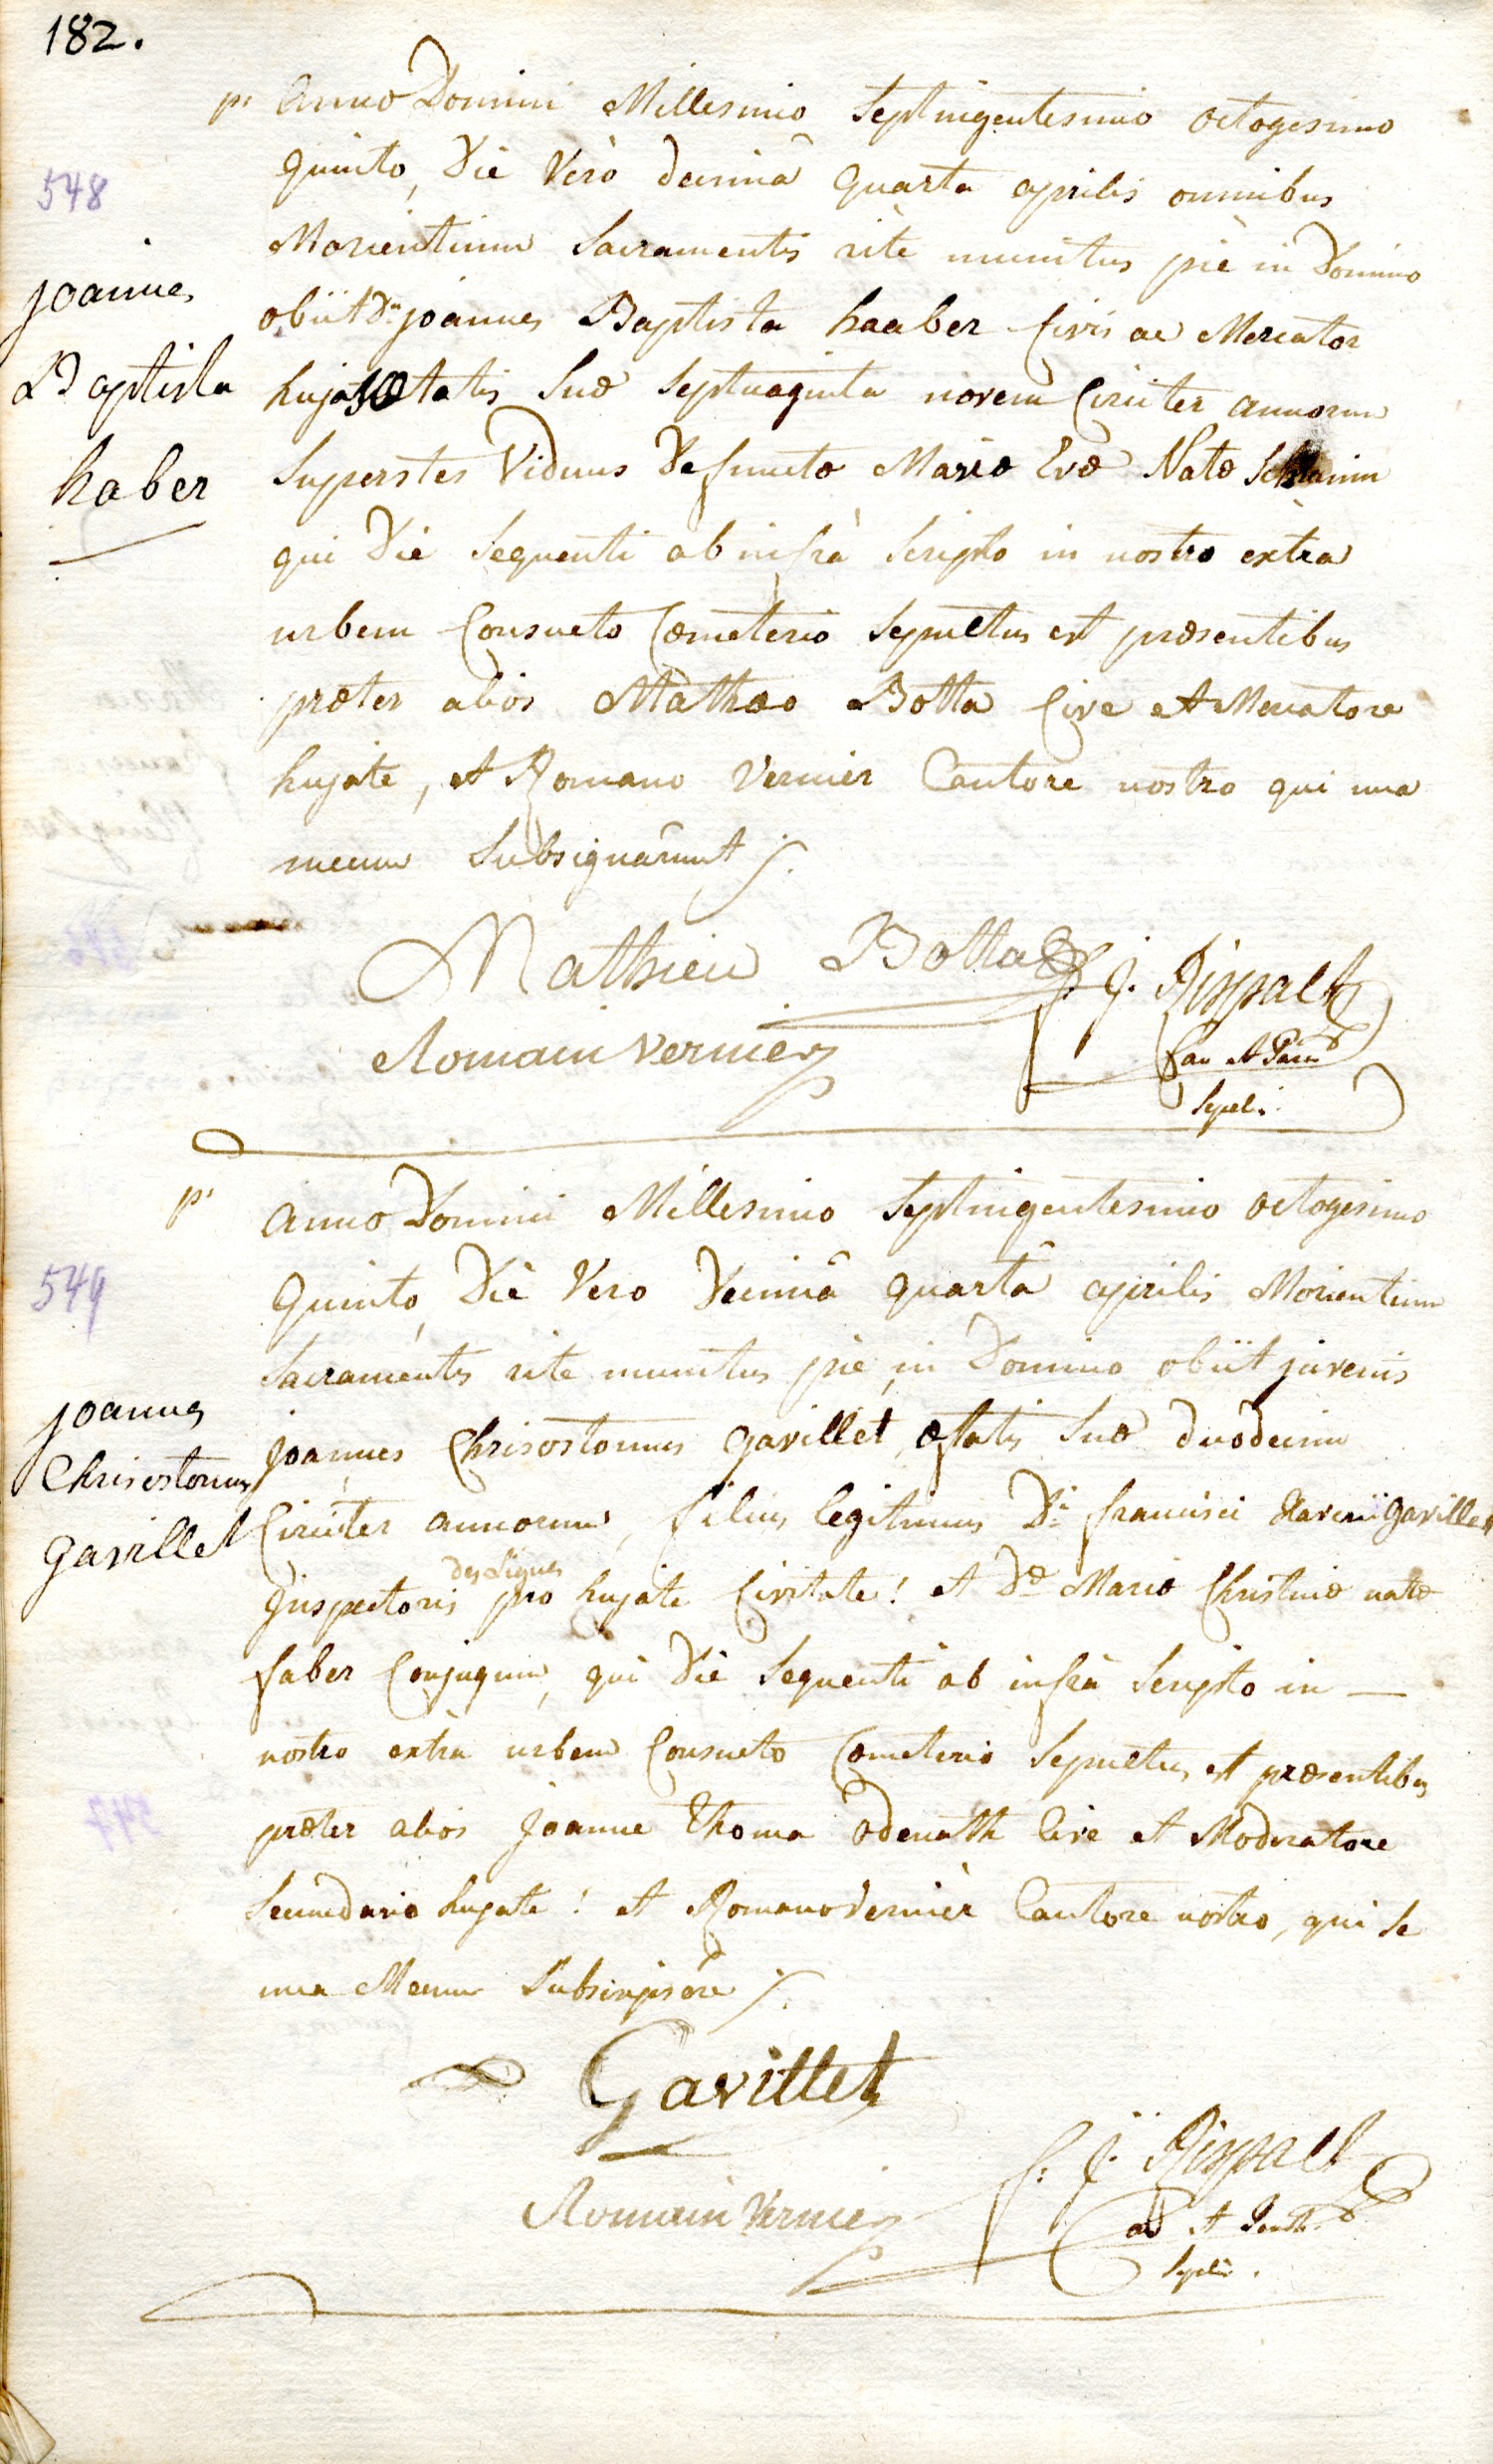 182.
p. Anno Domini Millesimo Septingentesimo octogesimo
quinto, Die Verò decimâ quarta aprilis omnibus
Morientium Sacramentis ritè munitus piè in Domino
obiit Dn. joannes Baptista haaber Civis ac Mercator
hujas ætatis Suæ Septuaginta novem Circiter annorum
Superstes Viduus Defunctæ Mariæ Evæ Natæ
qui Die Sequenti ab infrà Scripto in nostro extra
urbem Consueto Cœmeterio Sepultus est præsentibus
præter alios Mathæo Botta Cive et Mercatore
hujate, et Romano Vernier Cantore nostro qui una
mecum Subsignârunt ∕.
548
joannes
Baptista
haber
Mathieu Botta
f. J. Rispalt
Can et Paroch
Sepeli.
Romain Vernier
p. Anno Domini Millesimo Septingentesimo octogesimo
Quinto, Die Vero Decimâ quartâ aprilis Morientium
Sacramentis rite munitus piè in Domino obiit juvenis
joannes Chrisostomus gavillet, ætatis Suæ duodecim
Circiter annorum, filius legitimus Di. francisci Xaverii gavillet
des Ligues
Inspectoris pro hujate Civitate! et Dæ Mariæ Christinæ natæ
faber Conjugum, qui Die Sequenti ab infrà Scripto in —
nostro extra urbem Consueto Cœmeterio Sepultus est præsentibus
præter alios Joanne Thoma Odenath Cive et Moderatore
Secundario hujate! et Romano Vernièr Cantore nostro, qui se
una Mecum Subscripsêre ∕.
549
joannes
Chrisostomus
gavillet
Gavillet
f: J. Rispalt
Romain Vernier
Can et Paroch.
Sepeli.